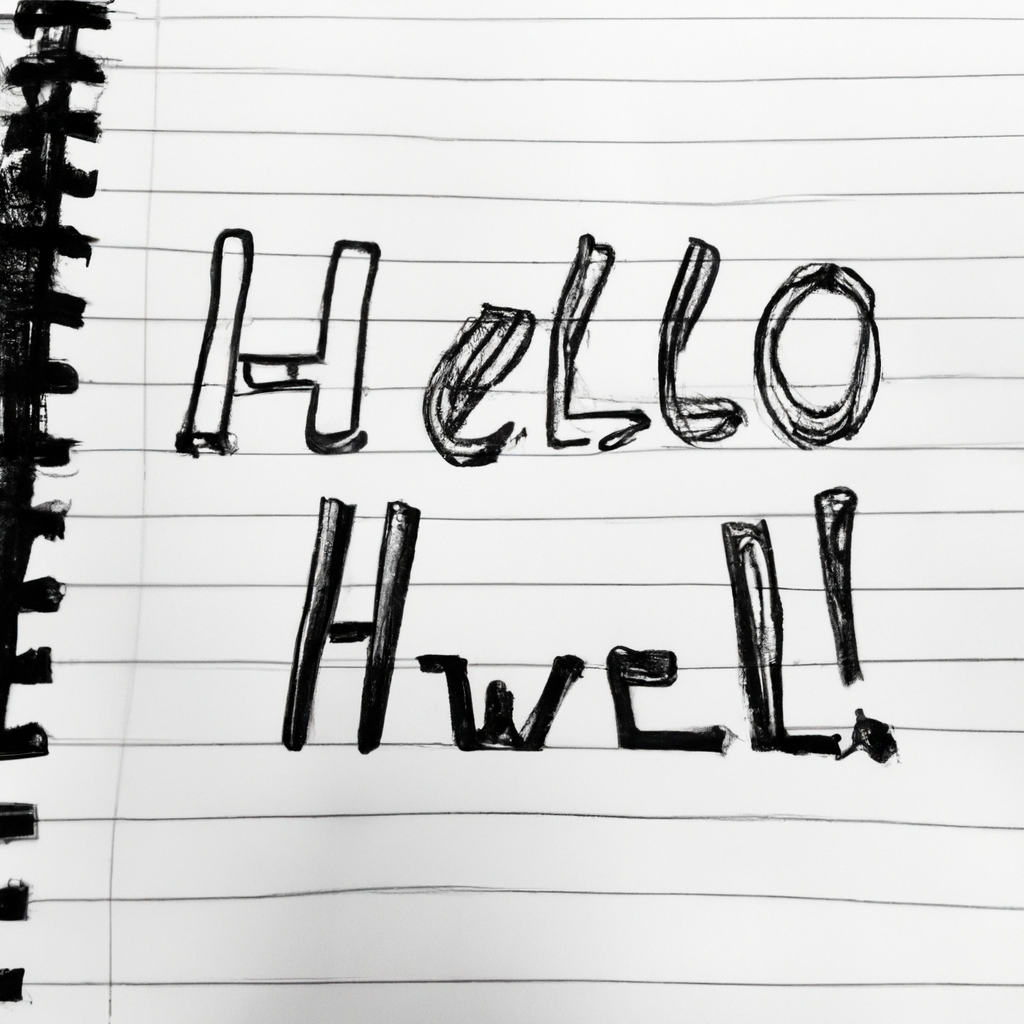 Hello
Hwel!